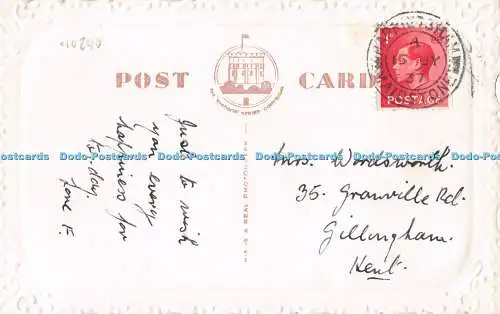 POST CARD
THIS IS A REAL PHOTOGRAPH
Just to wish
you every
happiness for
to day.
Love F.
Mrs. Wordsworth.
35. Granville Rd.
Gillingham.
Kent.
POSTAGE
A
37
Dodo-Postcards Dodo-Postcards Dodo-Postcards Dodo-Postcards Dodo-Postcards